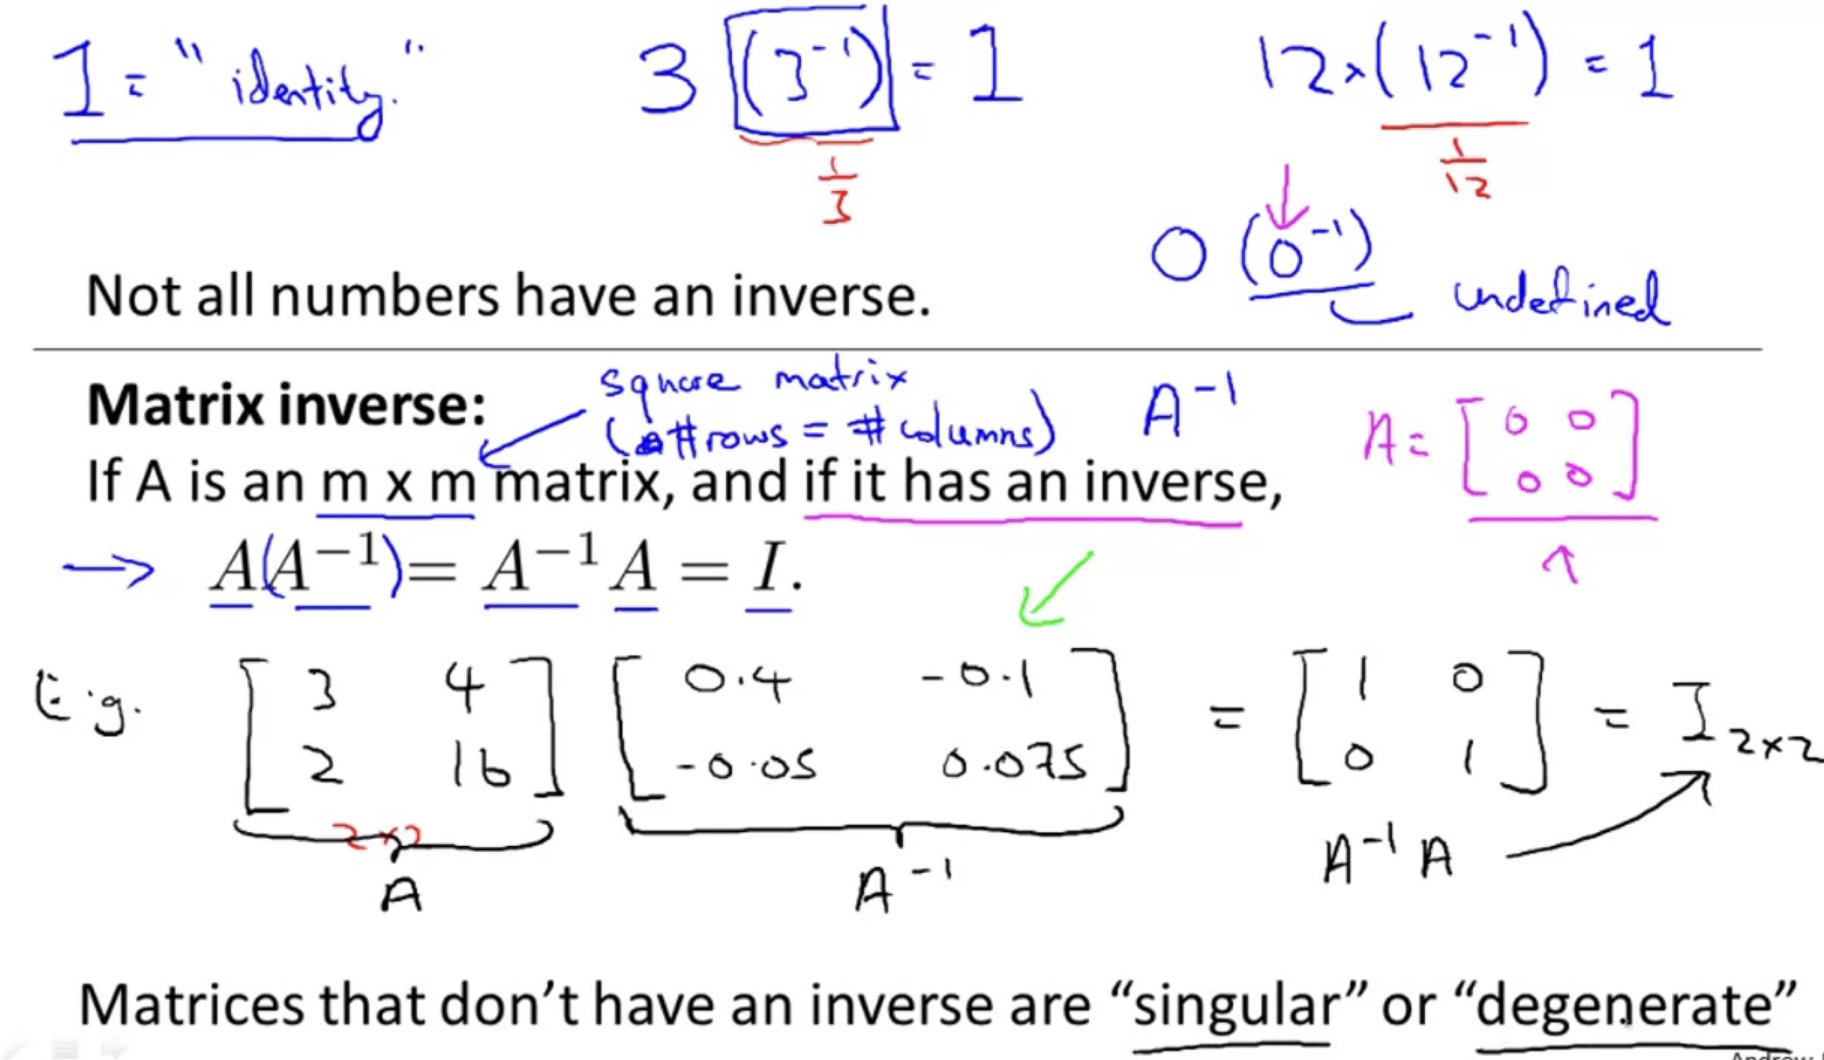 1 = "identity." 3 (3⁻¹) = 1 12 × (12⁻¹) = 1
1/3 1/12
0 (0⁻¹) undefined
Not all numbers have an inverse.
Matrix inverse: square matrix A⁻¹
(#rows = #columns) A = [0 0; 0 0]
If A is an m x m matrix, and if it has an inverse,
→ A(A⁻¹) = A⁻¹A = I.
E.g. [3 4; 2 16] [0.4 -0.1; -0.05 0.075] = [1 0; 0 1] = I 2×2
2×2
A A⁻¹ A⁻¹A
Matrices that don't have an inverse are “singular” or “degenerate”
Andrew